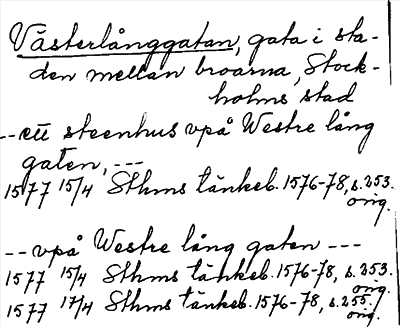 Västerlånggatan, gata i sta-
den mellan broarna, Stock-
holms stad
--ett steenhus vpå Westre lång
gaten, ---
1577 15/4 Sthms tänkeb. 1576-78, s. 253.
orig.
-- vpå Westre lång gaten ---
1577 15/4 Sthms tänkeb. 1576-78, s. 253.
orig.
1577 17/4 Sthms tänkeb. 1576-78, s. 255.
orig.